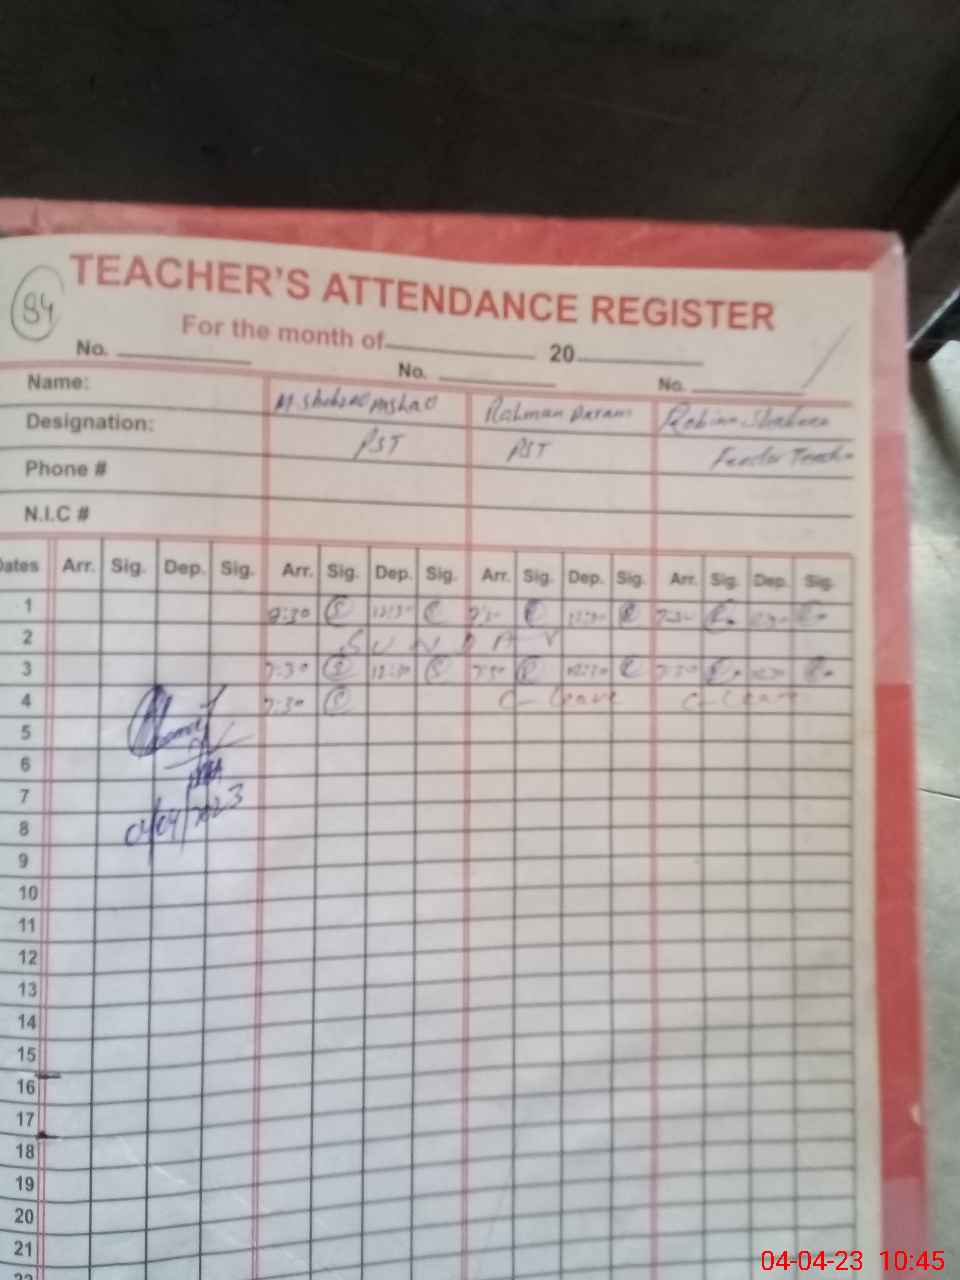 TEACHER'S ATTENDANCE REGISTER
84
For the month of 20
No. No. No.
Name: Rahman
Designation: PST PST Teach
Phone #
N.I.C #
Dates Arr. Sig. Dep. Sig. Arr. Sig. Dep. Sig. Arr. Sig. Dep. Sig. Arr. Sig. Dep. Sig.
1 7:30 12:30 7:30 12:30 7:30 12:30
2 SUNDAY
3 7:30 12:30 7:30 12:30 7:30 12:30
4 7:30 C-leave C-leave
5
6
7
8 04/04/2023
9
10
11
12
13
14
15
16
17
18
19
20
21
22
04-04-23 10:45